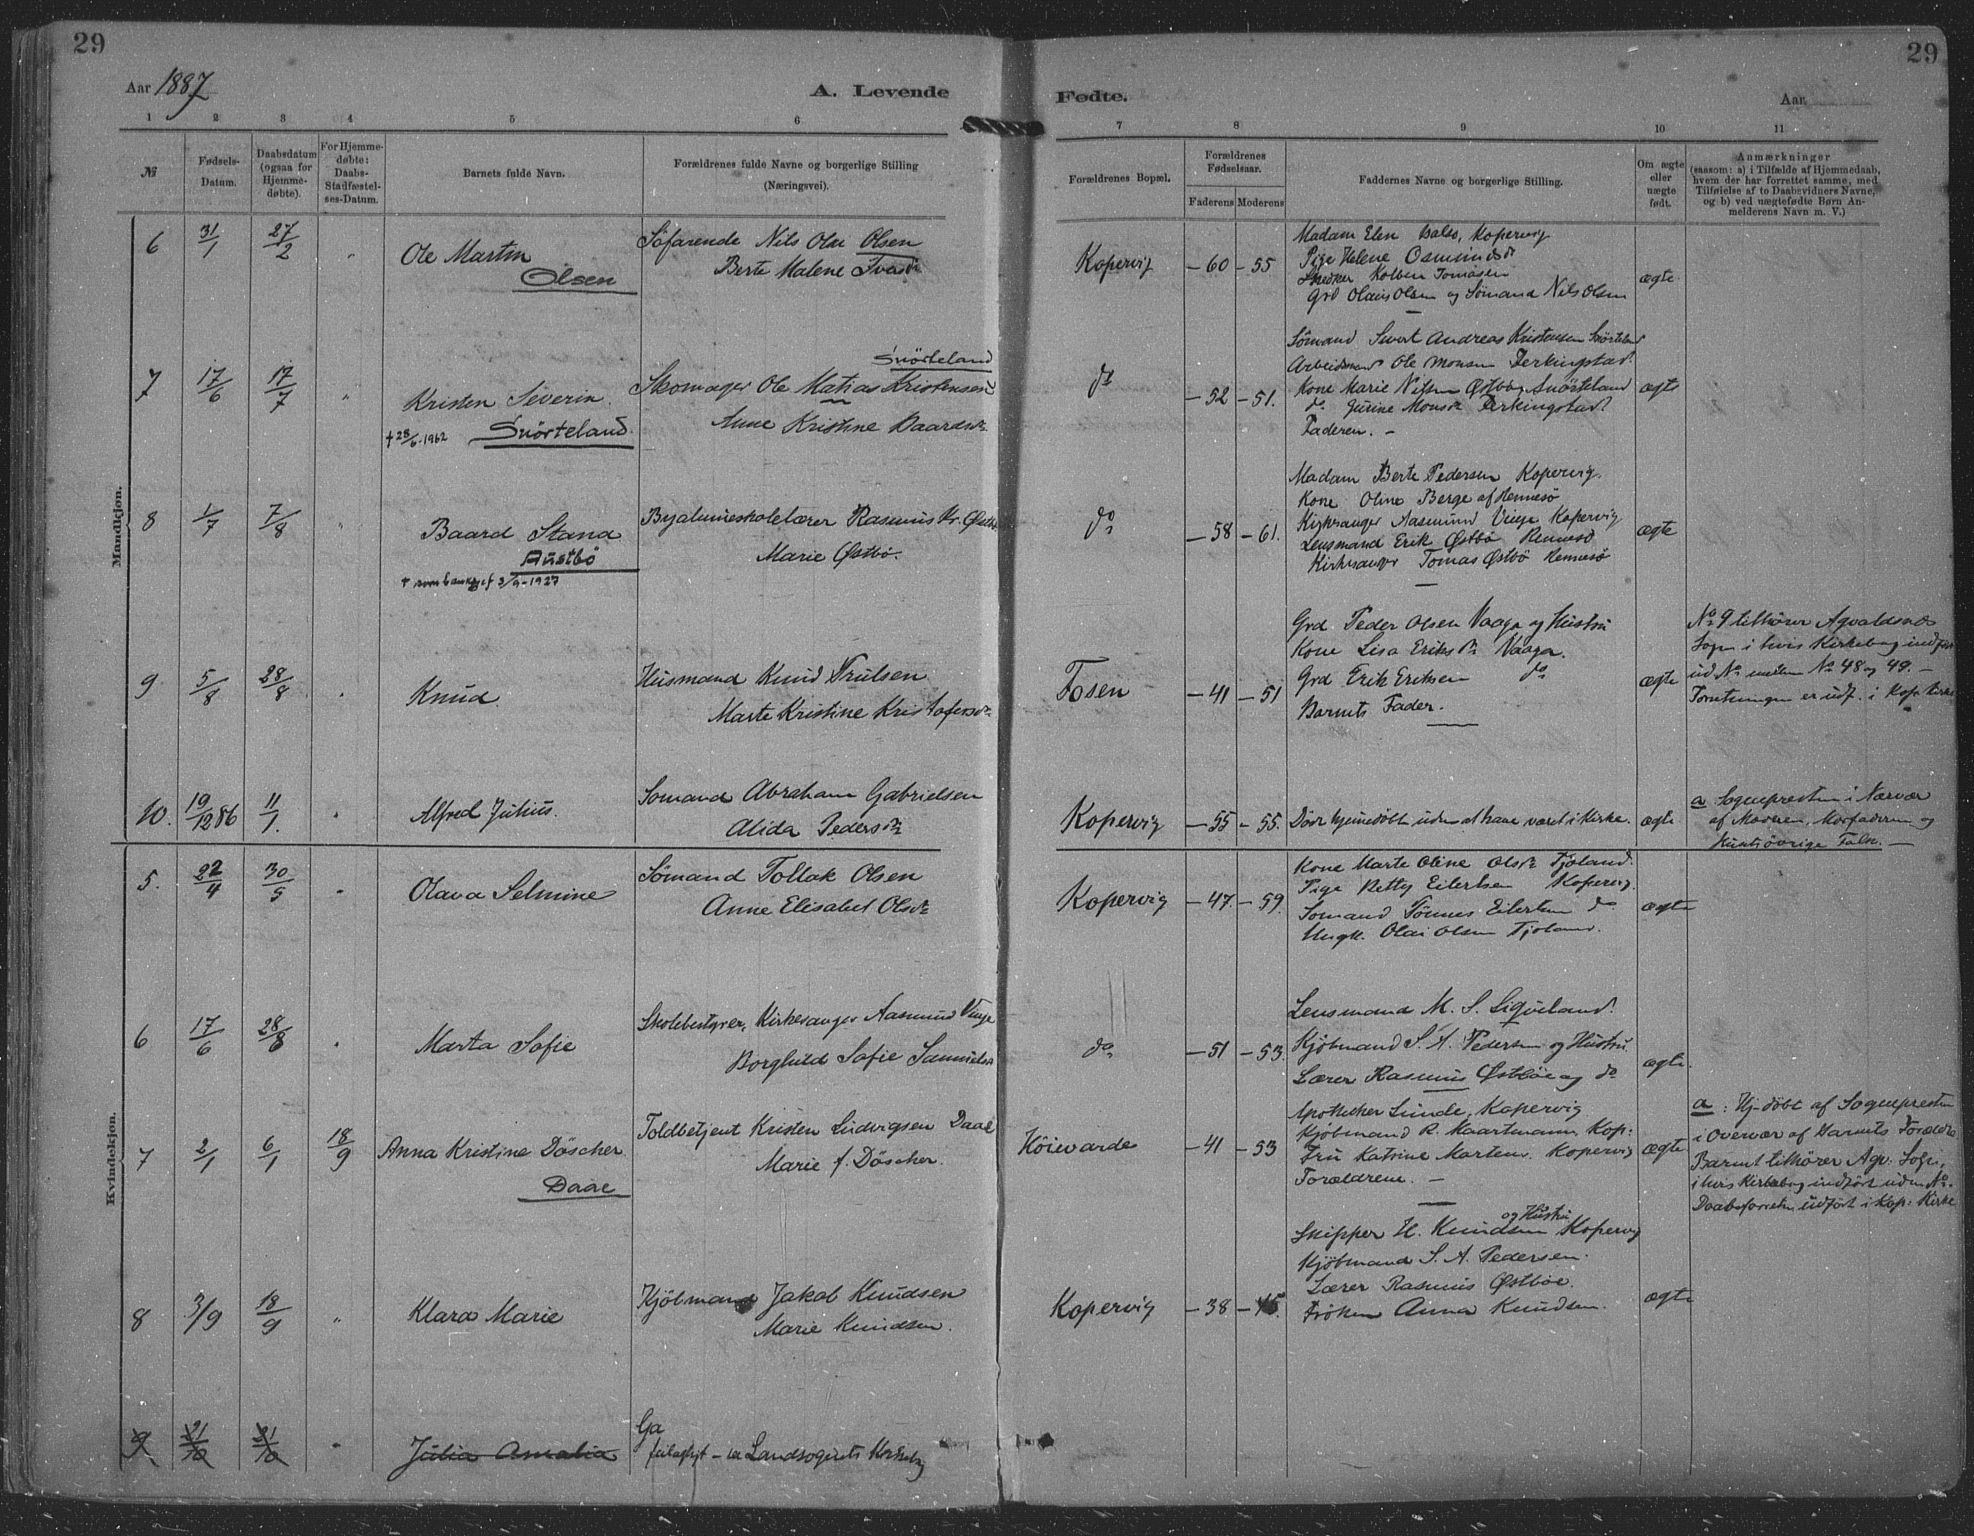 29
29
Aar 1887
A. Levende
Fødte.
Aar
1 2 3 4 5 6 7 8 9 10 11
№
Fødsels-
Datum.
Daabsdatum
(ogsaa for
Hjemme-
døbte).
For Hjemme-
døbte:
Daabs-
Stadfæstel-
ses-Datum.
Barnets fulde Navn.
Forældrenes fulde Navne og borgerlige Stilling
(Næringsvei).
Forældrenes Bopæl.
Forældrenes
Fødselsaar.
Faderens Moderens
Faddernes Navne og borgerlige Stilling.
Om ægte
eller
uægte
født.
Anmærkninger
(saasom: a) i Tilfælde af Hjemmedaab,
hvem der har forrettet samme, med
Tilføielse af to Daabsvidners Navne,
og b) ved uægtefødte Børn An-
melderens Navn m. V.)
Mandkjøn.
6 31/1 27/2 "
Ole Martin
Olsen
Søfarende Nils Olai Olsen
Berte Malene
Kopervig - 60 - 55
Madam Elen Kopervig
Pige Helene Osmundsdr
Snedker Kolben Tomasen
Grd Olaus Olsen og Sømand Nils Olsen
ægte
7 17/6 17/7 "
Kristen Severin
Snörteland
+ 28/6-1962
Snörteland
Skomager Ole Matias Kristensen
Anne Kristine Baardsdr
do - 52 - 51.
Sömand Sivert Andreas Kristensen Snörteland
Arbeidsmand Ole Monsen Ferkingstad
Kone Marie Nilsen Østbø, Snörteland
do Gurine Monsdr Ferkingstad
Faderen. -
ægte
8 1/7 7/8 "
Baard Strand
Austbö
+ 3/9-1927
Byalmueskolelærer Rasmus Kr. Østbø
Marie Østbø.
do - 58 - 61.
Madam Berte Pedersen Kopervig.
Kone Oline Berge af Hennesø
Kirkesanger Aasmund Vinje Kopervig
Lensmand Erik Østbø Rennesø
Kirkesanger Tomas Østbø Hennesø
ægte
9 5/8 28/8 "
Knud.
Husmand Knud Trulsen
Marte Kristine Kristofersdr
Fosen - 41 - 51
Grd Peder Olsen Vaaga og Hustru
Kone Lisa Eriksdr Vaaga.
Grd Erik Eriksen do
Barnets Fader.
ægte
No 9 tilhører Agvaldsnæs
Sogn i hvis Kirkebog indført
ud No mellem No 48 og 49. -
Forretningen er udf. i Kop. Kirke
10. 19/12 86 11/1. "
Alfred Julius.
Sömand Abraham Gabrielsen
Alida Pedersdr
Kopervig - 55 - 55.
Död hjemmedöbt uden at have været i Kirke.
ægte
a Sognepresten i Nærvær
af Moderen, Morfaderen og
Kvindekjøn.
5. 22/4 30/5 "
Olava Selmine
Sømand Tollak Olsen
Anne Elisabet Olsdr
Kopervig - 47 - 59.
Kone Marte Oline Olsdr Tjoland.
Pige Betty Eilertsen Kopervig.
Sømand Tønnes Eilertsen do
Ungk. Olai Olsen Tjoland.
ægte
6 17/6 28/8 "
Marta Sofie
Skolebestyrer, Kirkesanger Aasmund Vinje
Borghild Sofie Samuelsdr
do - 51 - 53.
Lensmand M. S. Liqveland.
Kjöbmand S. A. Pedersen og Hustru
Lærer Rasmus Østbøe og do
ægte.
7 2/1 6/1 18/9
Anna Kristine Döscher
Daae
Toldbetjent Kristen Ludvigsen Daae
Marie f. Döscher.
Höievarde - 41 - 53
Apotheker Lunde, Kopervig
Kjöbmand R. Maartmann, Kop:
Fru Katrine Martens Kopervig
Forældrene. -
ægte
a: Hj-döbt af Sognepresten
i Overvær af Barnets Forældre
Barnet tilhører Agv. Sogn,
i hvis Kirkebog indført uden No.
Daabsforretn. udført i Kop: Kirke
8 3/9 18/9 "
Klara Marie
Kjöbmand Jakob Knudsen
Marie Knudsen.
Kopervig - 38 - 45.
og Hustru
Skipper H. Knudsen Kopervig
Kjöbmand S. A. Pedersen.
Lærer Rasmus Østbøe.
Fröken Anna Knudsen.
ægte
9 21/10 31/10 "
Julia Amalia
Ga
feilagtigt - se Landsognets Kirkebog